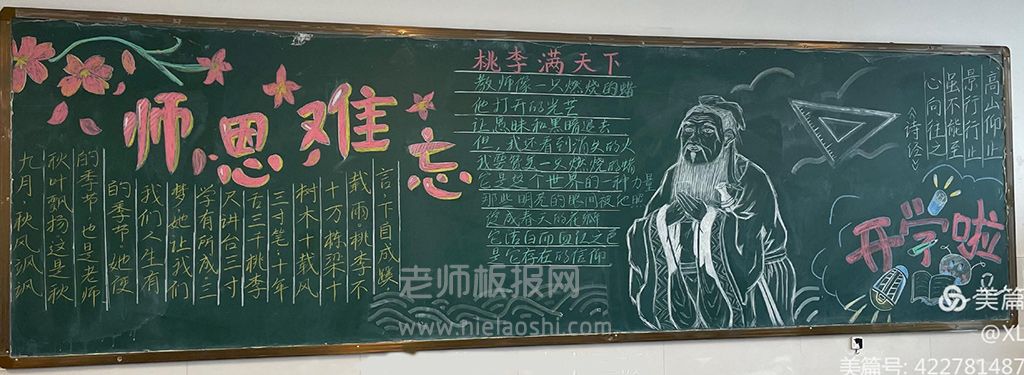 师恩难忘
言·下自成蹊
载雨·桃李不
十万栋梁十
树木十载风
三寸笔·十年
古三千桃李
尺讲台三寸
学有所成三
梦她让我们
我们人生有
的季节她使
的季节也是老师
秋叶飘扬这是秋
九月·秋风飒飒
桃李满天下
教师像一只燃烧的蜡
他打开的光芒
让愚昧和黑暗退去
但,我还看到消失的人
我要紧是一只燃烧的蜡
它是这个世界的一种力量
那些明亮的瞬间被他照
它洁白而
是它存在的信仰
高山仰止
景行行止
虽不能至
心向往之
《诗经》
开学啦
老师板报网
www.nielaoshi.com
美篇
@XL
美篇号: 422781487